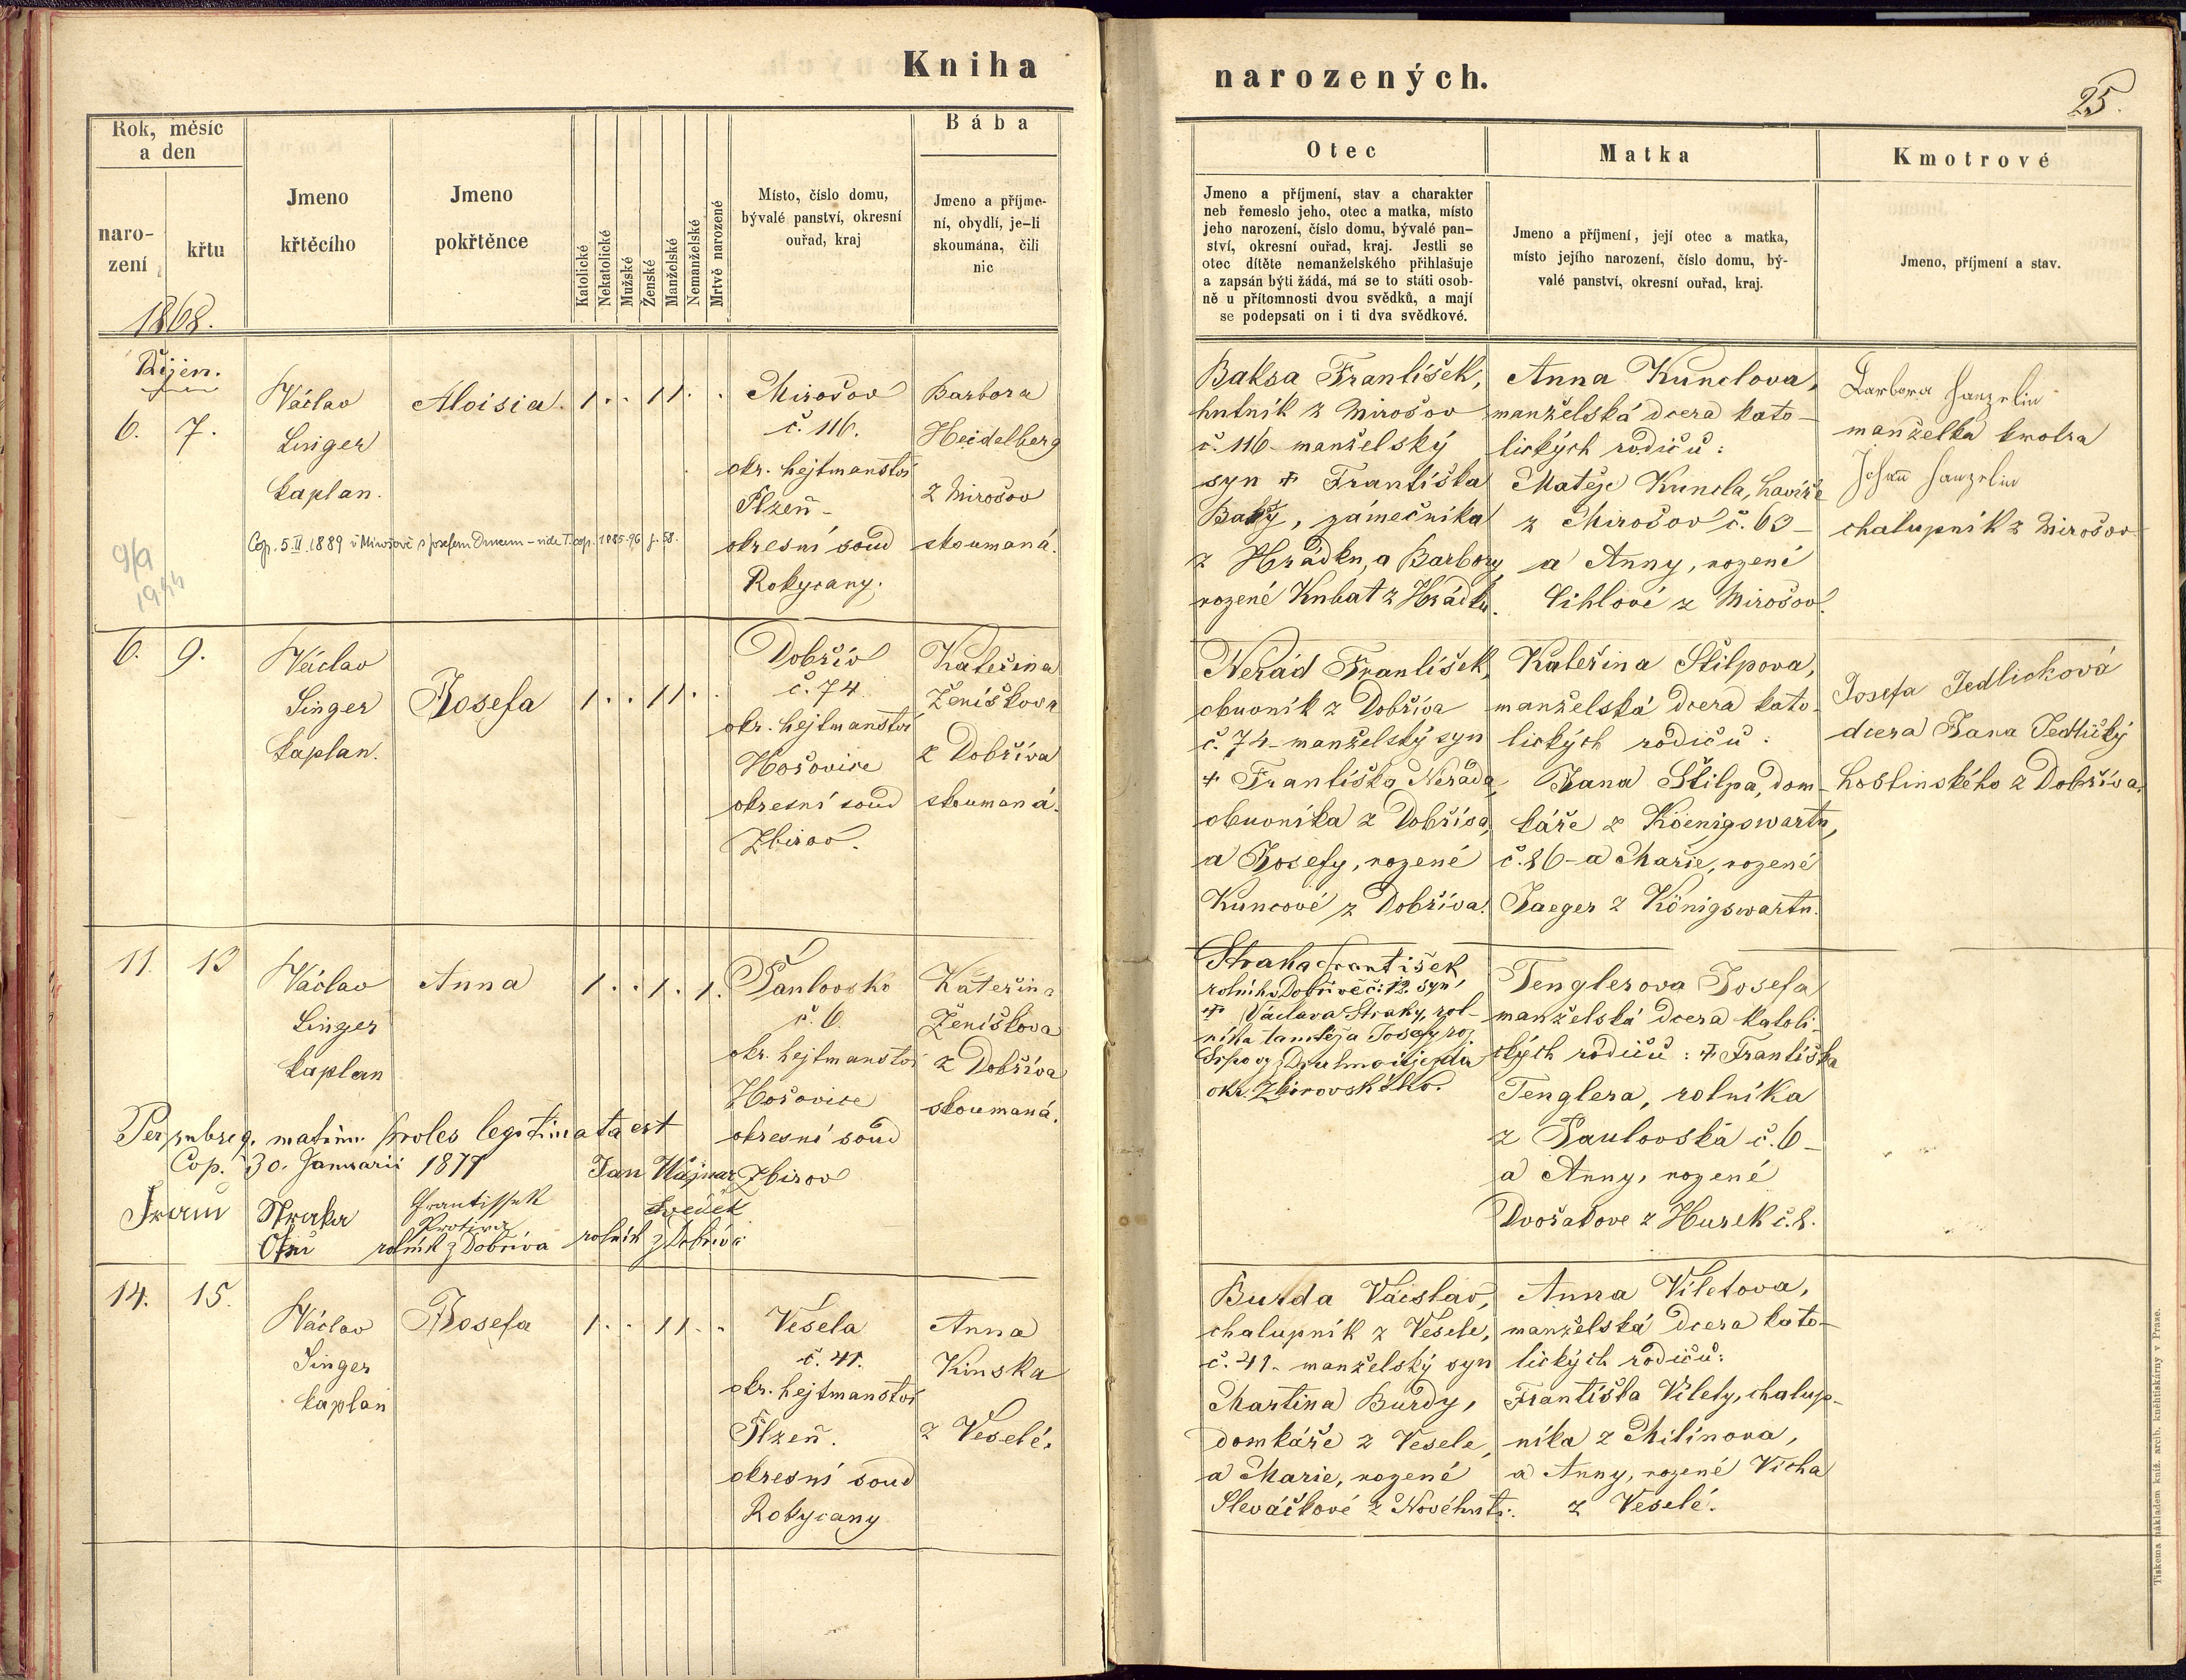 Kniha
narozených.
25.
Rok, měsíc
a den
naro-
zení
křtu
1868.
Jmeno
křtěcího
Jmeno
pokřtěnce
Katolické
Nekatolické
Mužské
Ženské
Manželské
Nemanželské
Mrtvě narozené
Místo, číslo domu,
bývalé panství, okresní
ouřad, kraj
Bába
Jmeno a příjme-
ní, obydlí, je-li
skoumána, čili
nic
Otec
Jmeno a příjmení, stav a charakter
neb řemeslo jeho, otec a matka, místo
jeho narození, číslo domu, bývalé pan-
ství, okresní ouřad, kraj. Jestli se
otec dítěte nemanželského přihlašuje
a zapsán býti žádá, má se to státi osob-
ně u přítomnosti dvou svědků, a mají
se podepsati on i ti dva svědkové.
Matka
Jmeno a příjmení, její otec a matka,
místo jejího narození, číslo domu, bý-
valé panství, okresní ouřad, kraj.
Kmotrové
Jmeno, příjmení a stav.
Říjen.
6. 7.
Václav
Singer
kaplan.
Aloisia.
1 . . 1 1 . .
Mirošov
č. 116.
okr. hejtmanství
Plzeň -
okresní soud
Rokycany.
Barbora
Heidelberg
z Mirošov
skoumaná.
Cop. 5.II.1889 v Mirošově s Josefem - vide T. cop. 1885-96 f. 58.
9/9
Baksa František,
hutník z Mirošov
č. 116 - manželský
syn + Františka
zámečníka
z Hrádku, a Barbory
rozené Kubat z Hrádku.
Anna Kunclova,
manželská dcera kato-
lických rodičů:
Matěje Kuncla, havíře
z Mirošov č. 63 -
a Anny, rozené
Cihlové z Mirošov.
Barbora Hanzelin
manželka kmotra
Johann Hanzelin
chalupník z Mirošov
6. 9.
Václav
Singer
kaplan.
Josefa
1 . . 1 1 . .
Dobřív
č. 74.
okr. hejtmanství
Hořovice
okresní soud
Zbirov.
Kateřina
Ženíškova
z Dobříva
skoumaná.
Nerád František,
obuvník z Dobříva
č. 74 - manželský syn
+ Františka Neráda,
obuvníka z Dobříva,
a Josefy, rozené
Kuncové z Dobříva.
Kateřina Štilpova,
manželská dcera kato-
lických rodičů:
Jana Štilpa, dom-
káře z Köenigswartu,
č. 86 - a Marie, rozené
Jaeger z Königswartu.
Josefa Jedličková
dcera Jana Jedličky
hostinského z Dobříva.
11. 13
Václav
Singer
kaplan
Anna
1 . . 1 . 1 .
Paulovsko
č. 6.
okr. hejtmanství
Hořovice
okresní soud
Zbirov
Kateřina
Ženíškova
z Dobříva
skoumaná.
Per subseq. matrim. proles legitimata est
Cop. 30. Januarii 1877
Straka
František
rolník z Dobříva
Jan
svědek
rolník z Dobříva
Straka František,
rolník v Dobřívě č. 12. syn
+ Václava Straky, rol-
níka tamtéž a Josefy roz.
okr. Zbirovského.
Tenglerova Josefa
manželská dcera katoli-
ckých rodičů: + Františka
Tenglera, rolníka
z Paulovska č. 6 -
a Anny, rozené
Dvořakove z Hurek č. 8.
14. 15.
Václav
Singer
kaplan
Josefa
1 . . 1 1 . .
Vesela
č. 41.
okr. hejtmanství
Plzeň.
okresní soud
Rokycany
Anna
Kinska
z Veselé.
Burda Václav,
chalupník z Vesele,
č. 41 - manželský syn
Martina Burdy,
domkáře z Vesele,
a Marie, rozené
Slováčkové z Novéhuti.
Anna Viletova,
manželská dcera kato-
lických rodičů:
Františka Vilety, chalup-
níka z Milínova,
a Anny, rozené Vicha
z Veselé.
Tiskem a nákladem kníž. arcib. knihtiskárny v Praze.